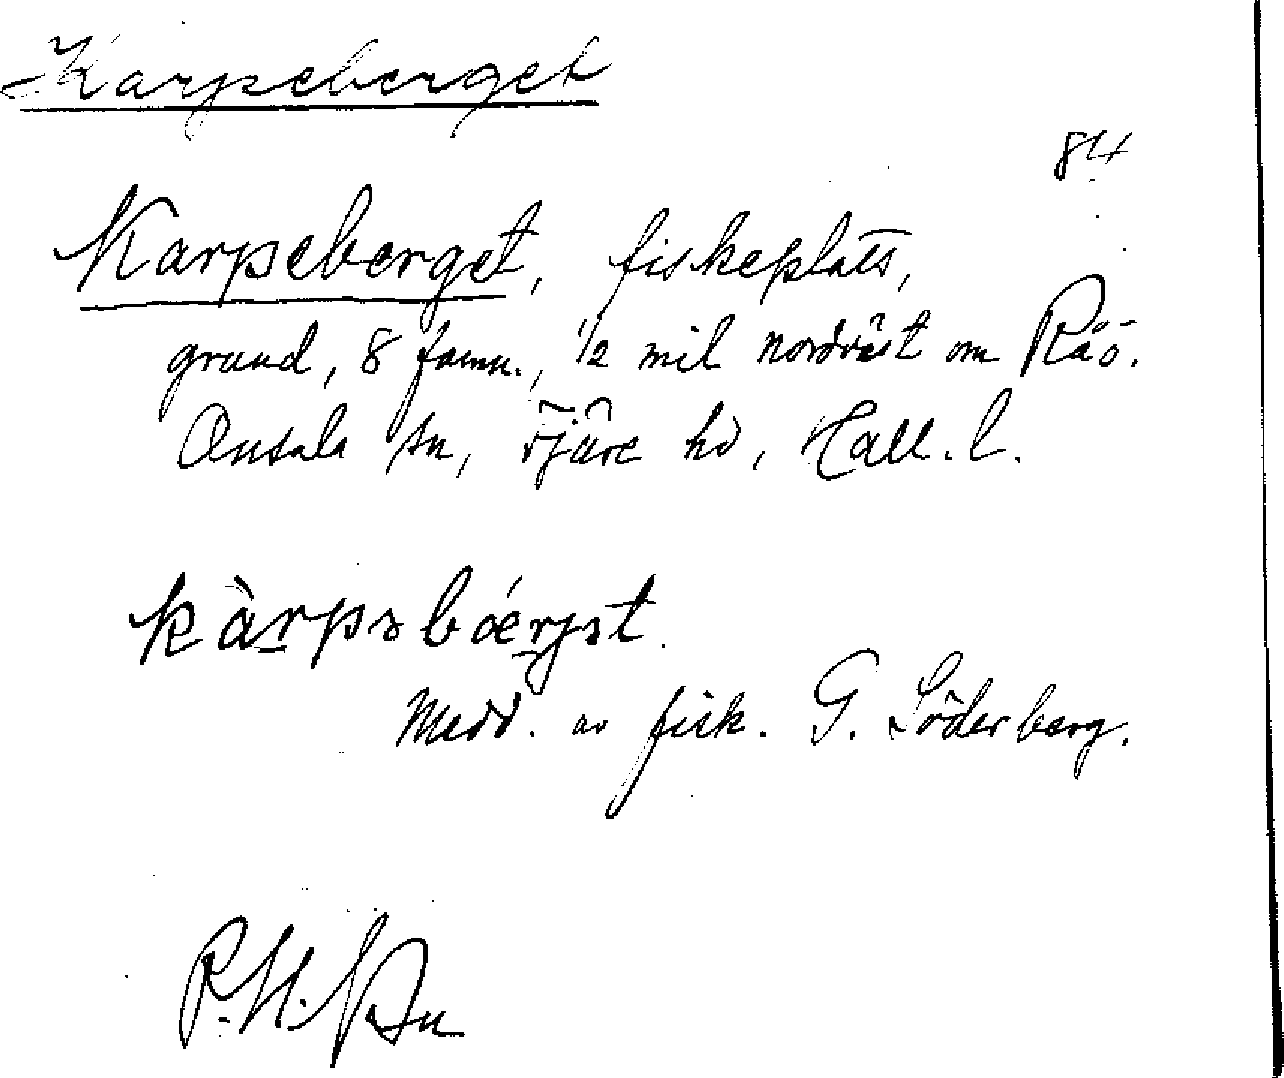 Karpeberget
84
Karpeberget, fiskeplats,
grund, 8 famn., 1/2 mil nordväst om Råö.
Onsala sn, Fjäre hd, Hall. l.
Medd. av fisk. G. Söderberg.
P. H.